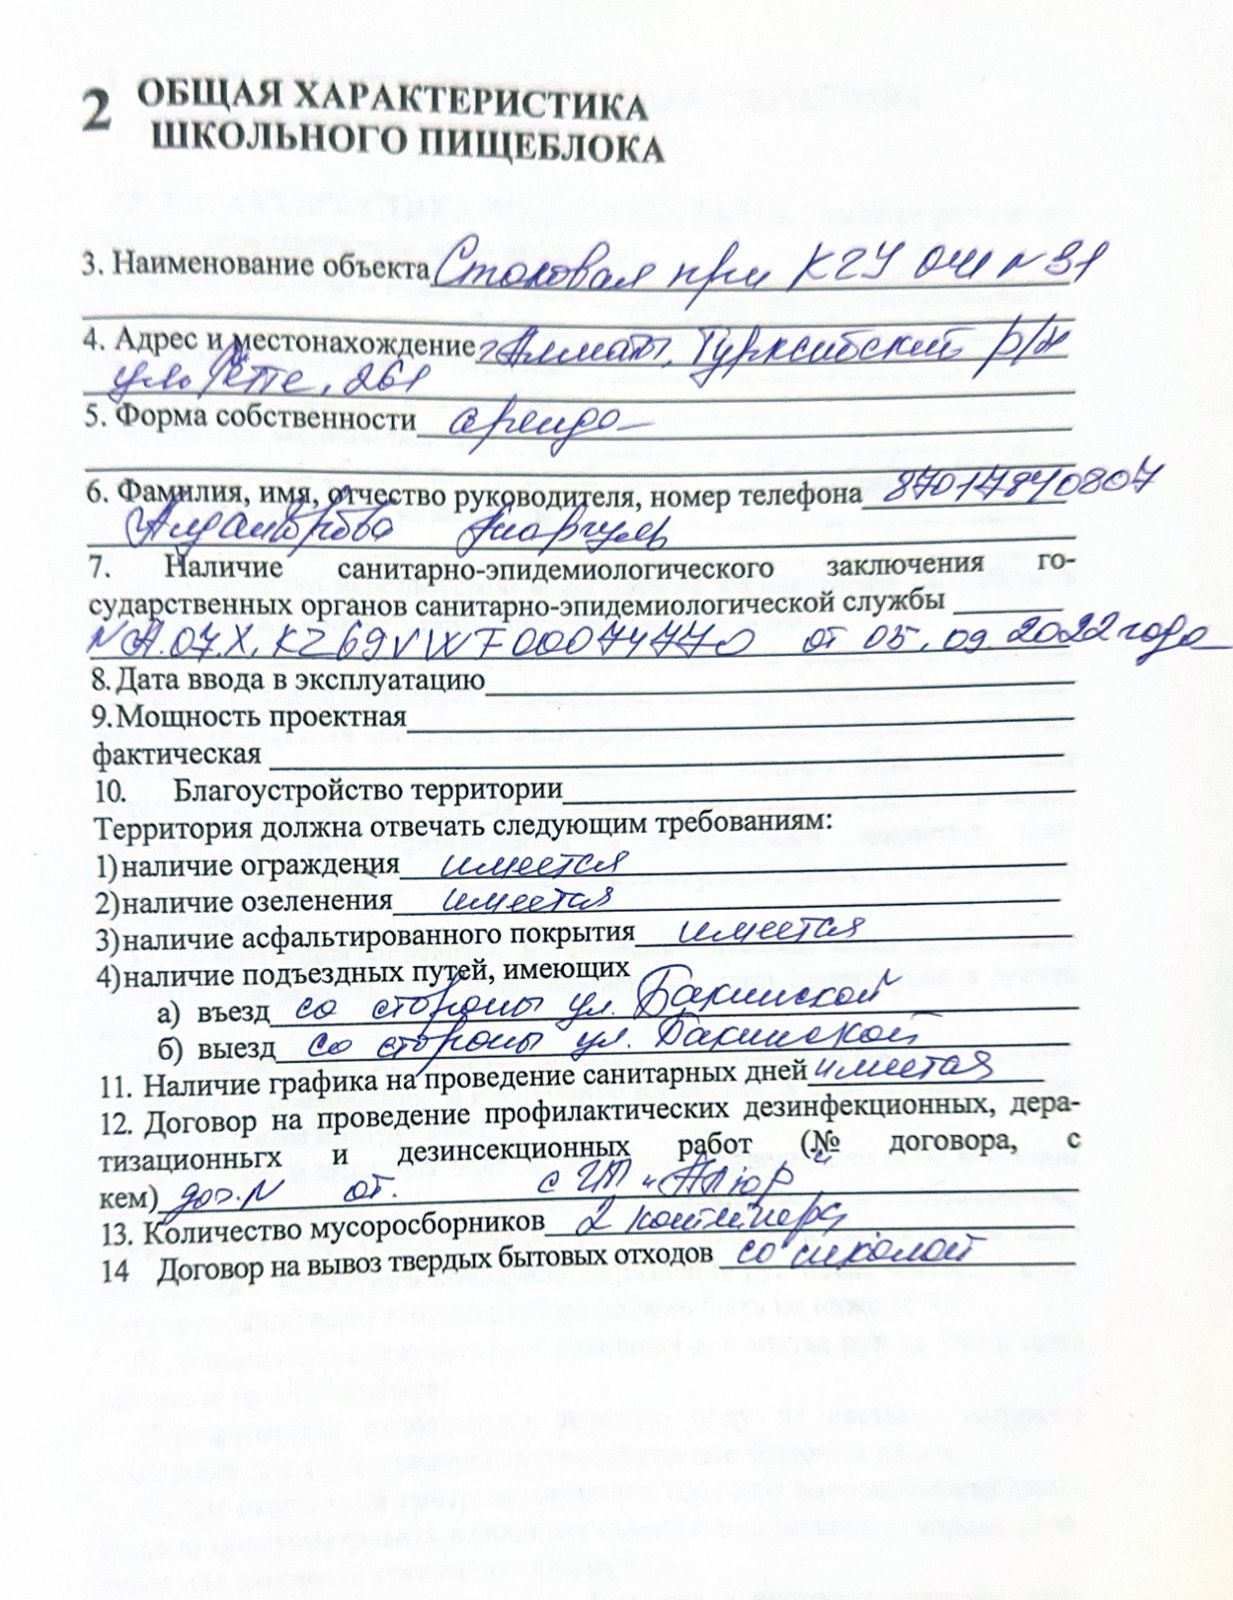 2 ОБЩАЯ ХАРАКТЕРИСТИКА
ШКОЛЬНОГО ПИЩЕБЛОКА
3. Наименование объекта Столовая при КГУ ОШ №31
4. Адрес и местонахождение г. Алматы, Турксибский р/н
ул. 261
5. Форма собственности аренда
6. Фамилия, имя, отчество руководителя, номер телефона 87017840807
7. Наличие санитарно-эпидемиологического заключения го-
сударственных органов санитарно-эпидемиологической службы
№ А.07.Х.KZ69VWF00074770 от 05.09.2022 года
8. Дата ввода в эксплуатацию
9. Мощность проектная
фактическая
10. Благоустройство территории
Территория должна отвечать следующим требованиям:
1) наличие ограждения имеется
2) наличие озеленения имеется
3) наличие асфальтированного покрытия имеется
4) наличие подъездных путей, имеющих
а) въезд со стороны ул. Бакинской
б) выезд со стороны ул. Бакинской
11. Наличие графика на проведение санитарных дней имеется
12. Договор на проведение профилактических дезинфекционных, дера-
тизационньгх и дезинсекционных работ (№ договора, с
кем) дог. № от. с
13. Количество мусоросборников 2 контейнера
14 Договор на вывоз твердых бытовых отходов со школой